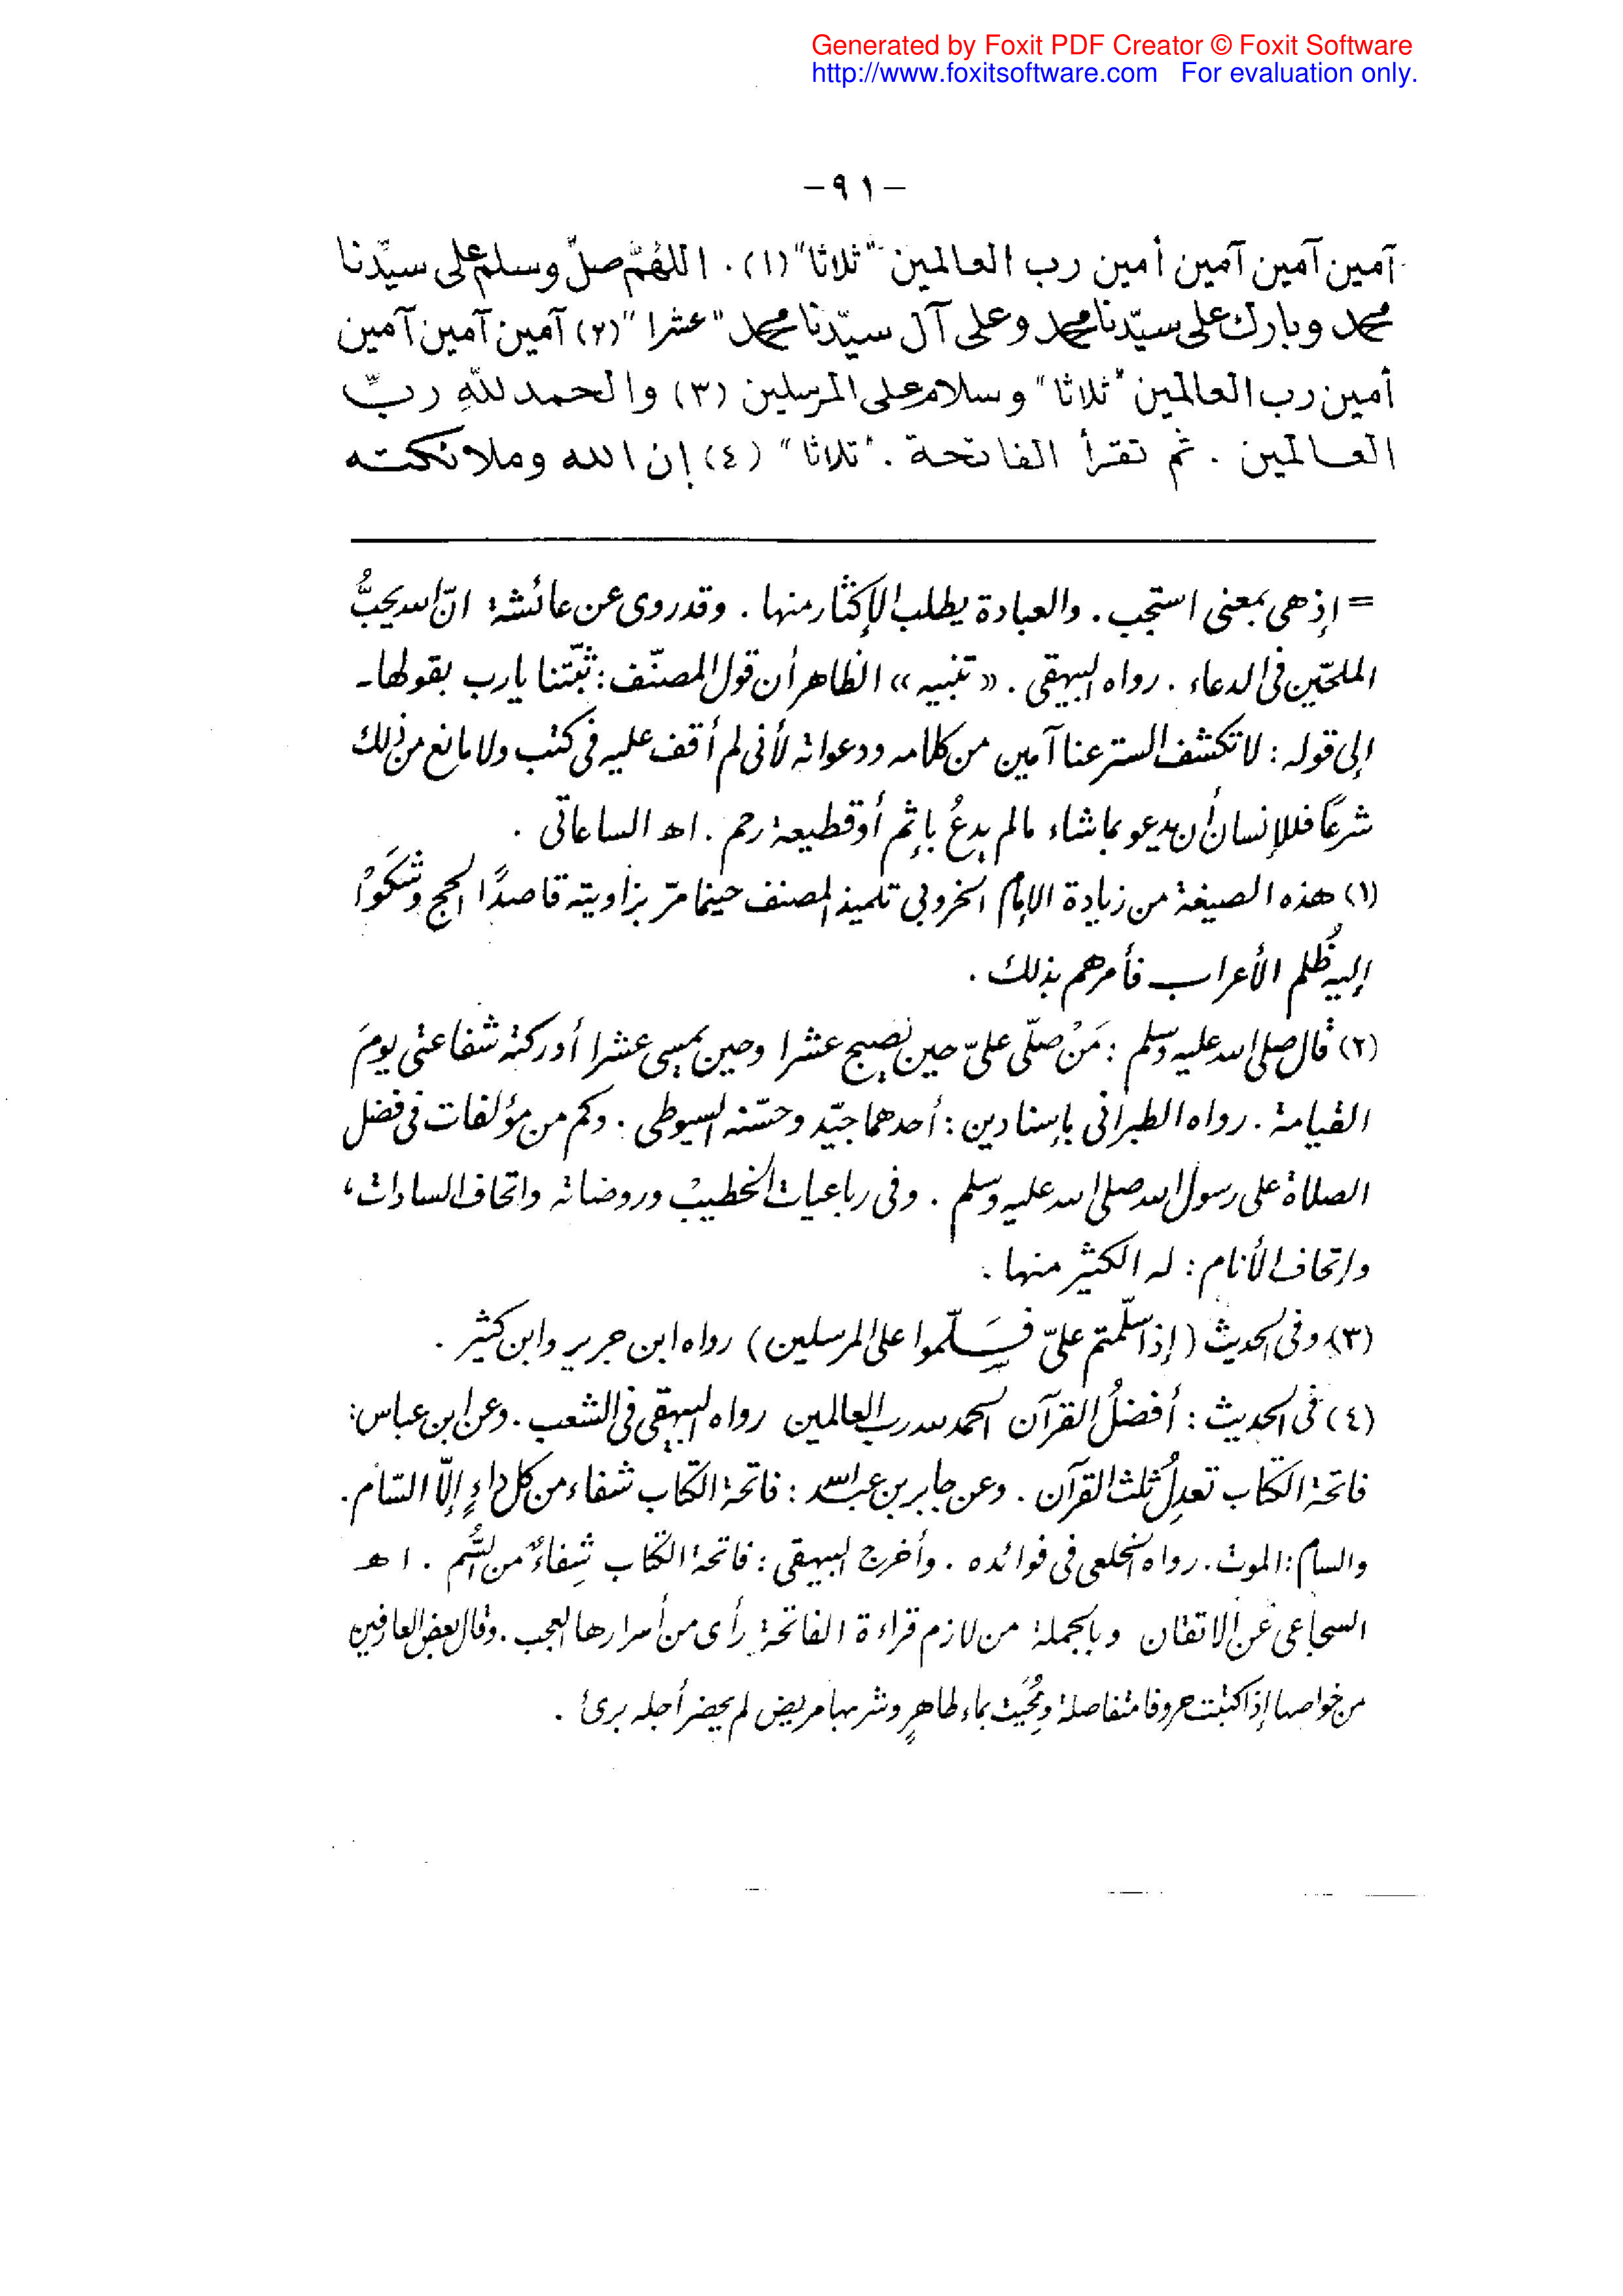 Generated by Foxit PDF Creator © Foxit Software
http://www.foxitsoftware.com For evaluation only.
-٩١-
آمين آمين آمين أمين رب العالمين "ثلاثا" (١). اللهُمّ صلّ وسلم على سيّدنا
محمد وبارك على سيّدنا محمد وعلى آل سيّدنا محمد "عشرا" (٢) آمين آمين آمين
أمين رب العالمين "ثلاثا" وسلام على المرسلين (٣) والحمد للّهِ ربِّ
العالمين . ثم تقرأ الفاتحة . "ثلاثا" (٤) إن الله وملائكته
= إذ هي بمعنى استجب . والعبادة يطلب الإكثار منها . وقد روى عن عائشة انّ الله يحبُّ
الملحّين في الدعاء . رواه البيهقى . «تنبيه» الظاهر أن قول المصنّف : ثبّتنا يارب بقولها -
إلى قوله : لا تكشف الستر عنا آمين من كلامه ودعواته لأنى لم أقف عليه فى كتب ولا مانع من ذلك
شرعًا فللإنسان أن يدعو بما شاء مالم يدعُ بإثم أو قطيعة رحم . اهـ الساعاتى .
(١) هذه الصيغة من زيادة الإمام الخروبي تلميذ المصنف حينما مرّ بزاويته قاصدًا الحج وشكَوْا
إليه ظُلم الأعراب فأمرهم بذلك .
(٢) قال صلى الله عليه وسلم : مَنْ صلّى علىّ حين يصبح عشرا وحين يمسى عشرا أدركته شفاعتى يومَ
القيامة . رواه الطبرانى بإسنادين : أحدهما جيّد وحسّنه السيوطى . وكم من مؤلفات فى فضل
الصلاة على رسول الله صلى الله عليه وسلم . وفى رباعيات الخطيب وروضاته واتحاف السادات ،
واتحاف الأنام : له الكثير منها .
(٣) وفى الحديث (إذا سلّمتم علىّ فسَلّموا على المرسلين) رواه ابن جرير وابن كثير .
(٤) فى الحديث : أفضلُ القرآن الحمد لله رب العالمين رواه البيهقى فى الشعب . وعن ابن عباس :
فاتحة الكتاب تعدِلُ ثلث القرآن . وعن جابر بن عبد الله : فاتحة الكتاب شفاء من كل داءٍ إلّا السّام .
والسام : الموت . رواه الخلعى فى فوائده . وأخرج البيهقى : فاتحة الكتاب شِفاءٌ من السُّم . اهـ
السجاعى عن الاتقان وبالجملة من لازم قراءة الفاتحة رأى من أسرارها العجب . وقال بعض العارفين
من خواصها إذا كتبت حروفا متفاصلة ومُحُيَت بماء طاهرٍ وشربها مريض لم يحضر أجله برئ .